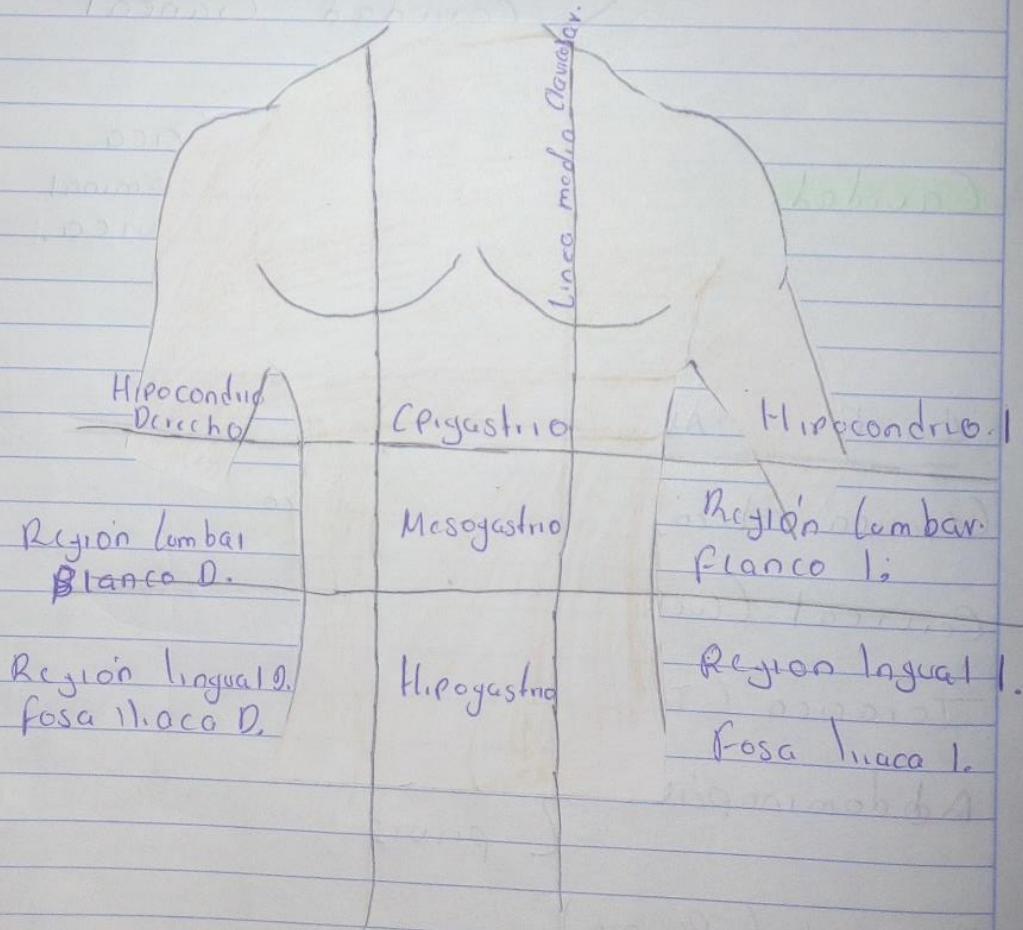 Linea media Clavicular.
Hipocondrio
Derecho
Epigastrio
Hipocondrio. I
Región lumbar
Flanco D.
Mesogastrio
Región lumbar.
flanco I.
Región lingual D.
fosa iliaca D.
Hipogastrio
Region Ingual I.
Fosa Iliaca I.